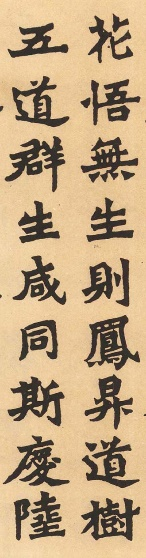 花悟無生則鳳昇道樹
五道群生咸同斯慶陸